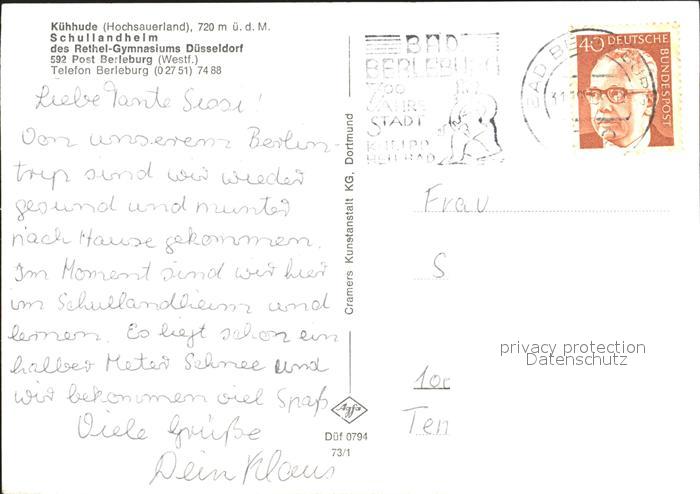 Kühhude (Hochsauerland), 720 m ü. d. M.
Schullandheim
des Rethel-Gymnasiums Düsseldorf
592 Post Berleburg (Westf.)
Telefon Berleburg (0 27 51) 74 88
Liebe Tante Sissi!
Von unserem Berlin-
trip sind wir wieder
gesund und munter
nach Hause gekommen.
Im Moment sind wir hier
im Schullandheim und
lernen. Es liegt schon ein
halber Meter Schnee und
wir bekommen viel Spaß
Viele Grüße
Dein Klaus
Cramers Kunstanstalt KG, Dortmund
Agfa
Düf 0794
73/1
BAD
BERLEBURG
700
JAHRE
STADT
KNEIPP
HEILBAD
BAD BERLEBURG
40 DEUTSCHE
BUNDESPOST
Frau
S
privacy protection
Datenschutz
10
Ten